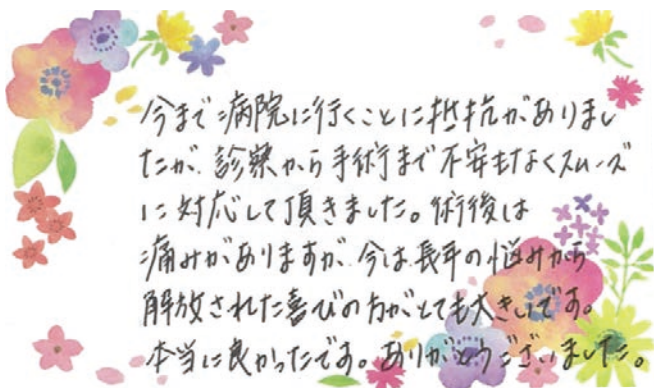 今まで病院に行くことに抵抗がありまし
たが、診察から手術まで不安もなくスムーズ
に対応して頂きました。術後は
痛みがありますが、今は長年の悩みから
解放された喜びの方がとても大きいです。
本当に良かったです。ありがとうございました。